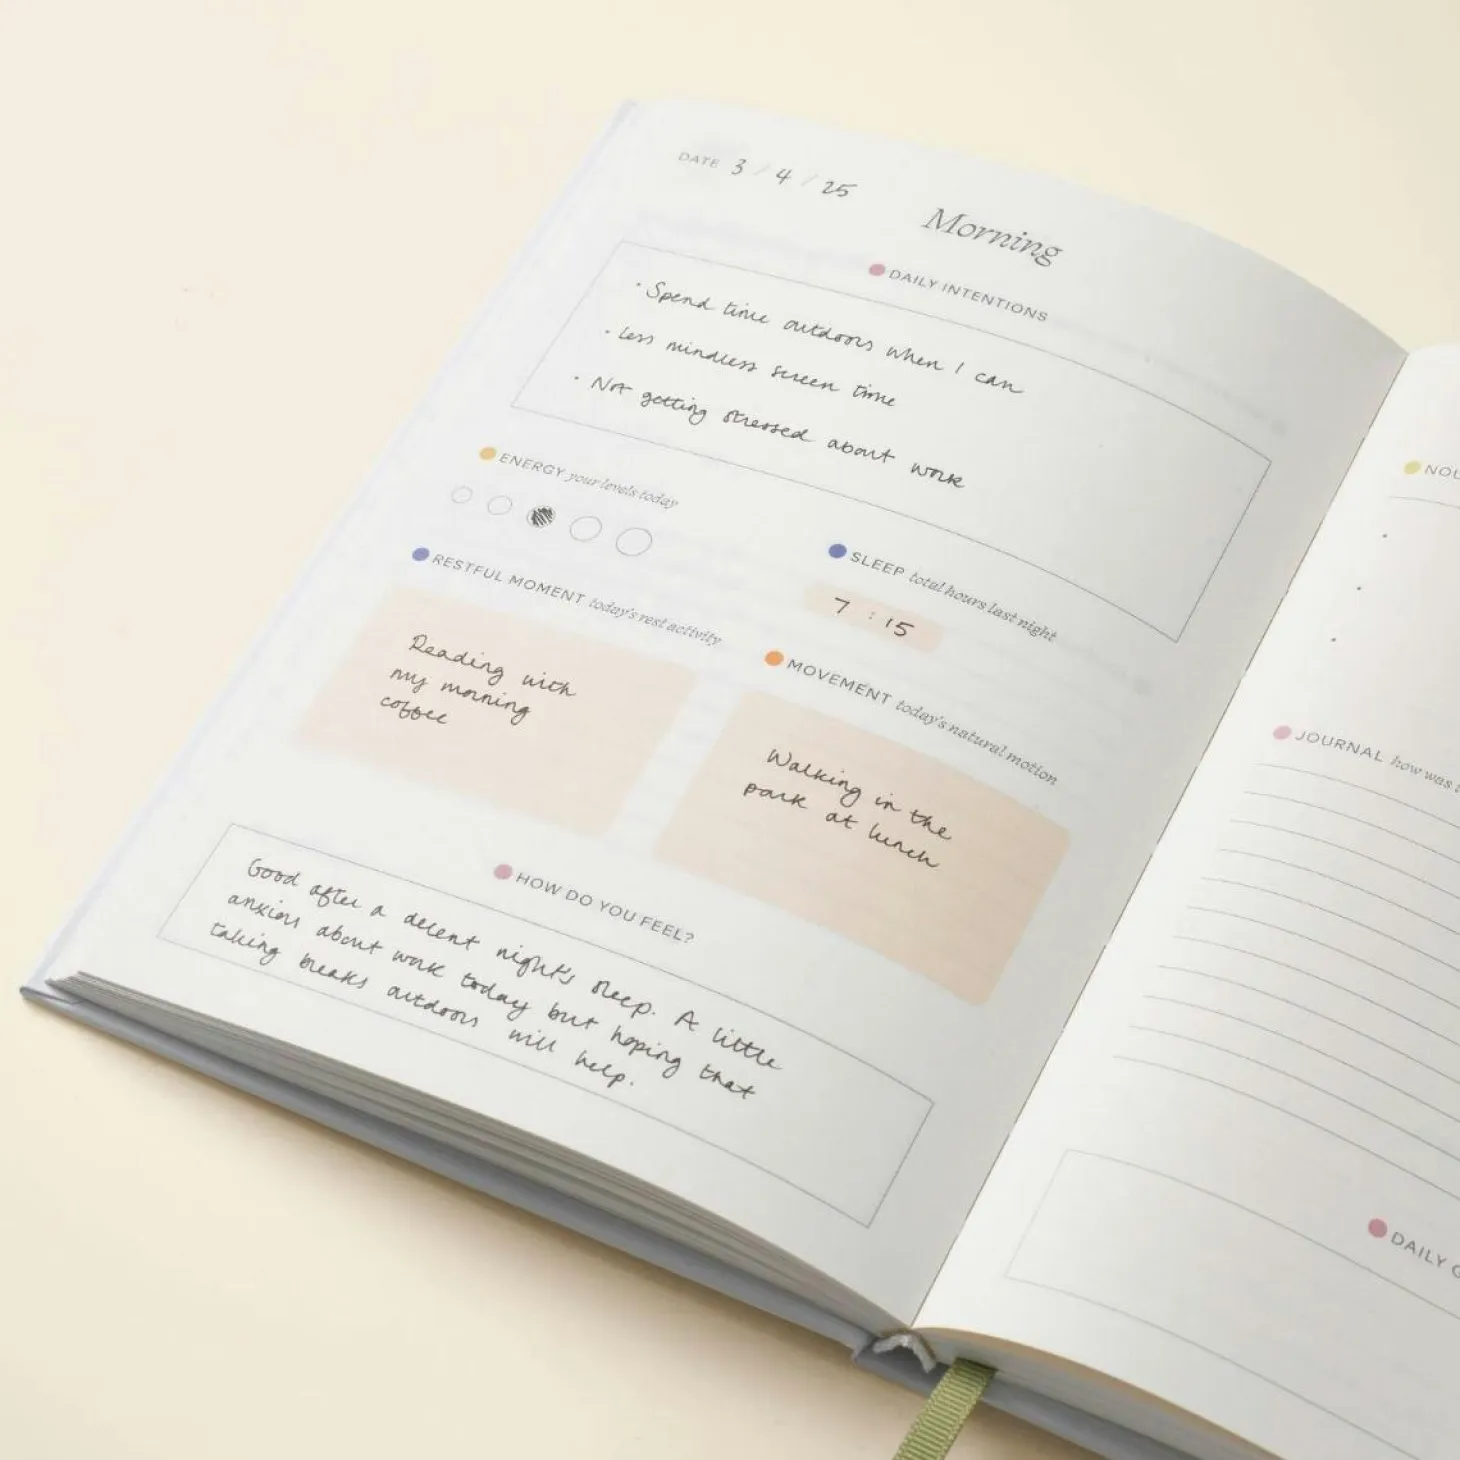 DATE 3 / 4 / 25
Morning
DAILY INTENTIONS
· Spend time outdoors when I can
· Less mindless screen time
· Not getting stressed about work
ENERGY your levels today
SLEEP total hours last night
7 : 15
RESTFUL MOMENT today's rest activity
Reading with
my morning
coffee
MOVEMENT today's natural motion
Walking in the
park at lunch
HOW DO YOU FEEL?
Good after a decent night's sleep. A little
anxious about work today but hoping that
taking breaks outdoors will help.
NOU
JOURNAL how was
DAILY